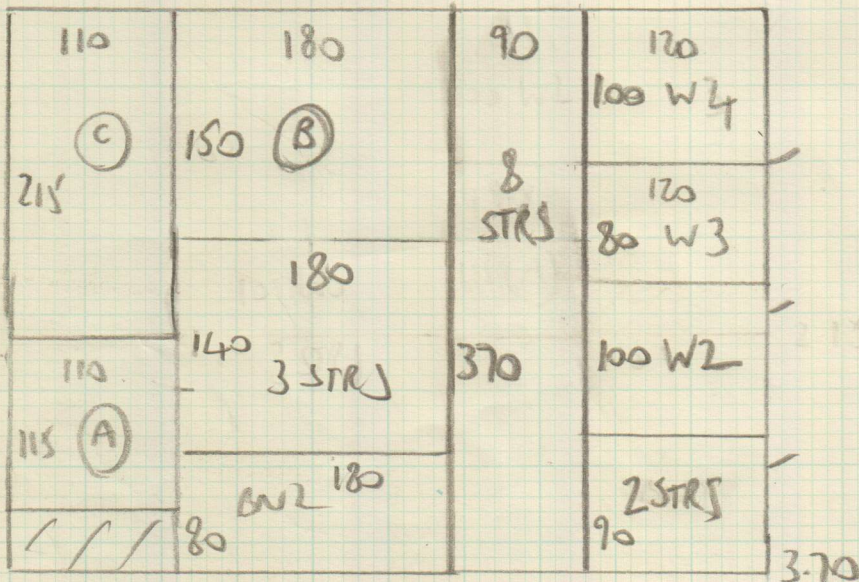 110
C
215
110
115 A
180
150 B
180
140
3 STRS
180
BN2
80
90
8
STRS
370
120
100 W4
120
80 W3
100 W2
2 STRS
90
3.70